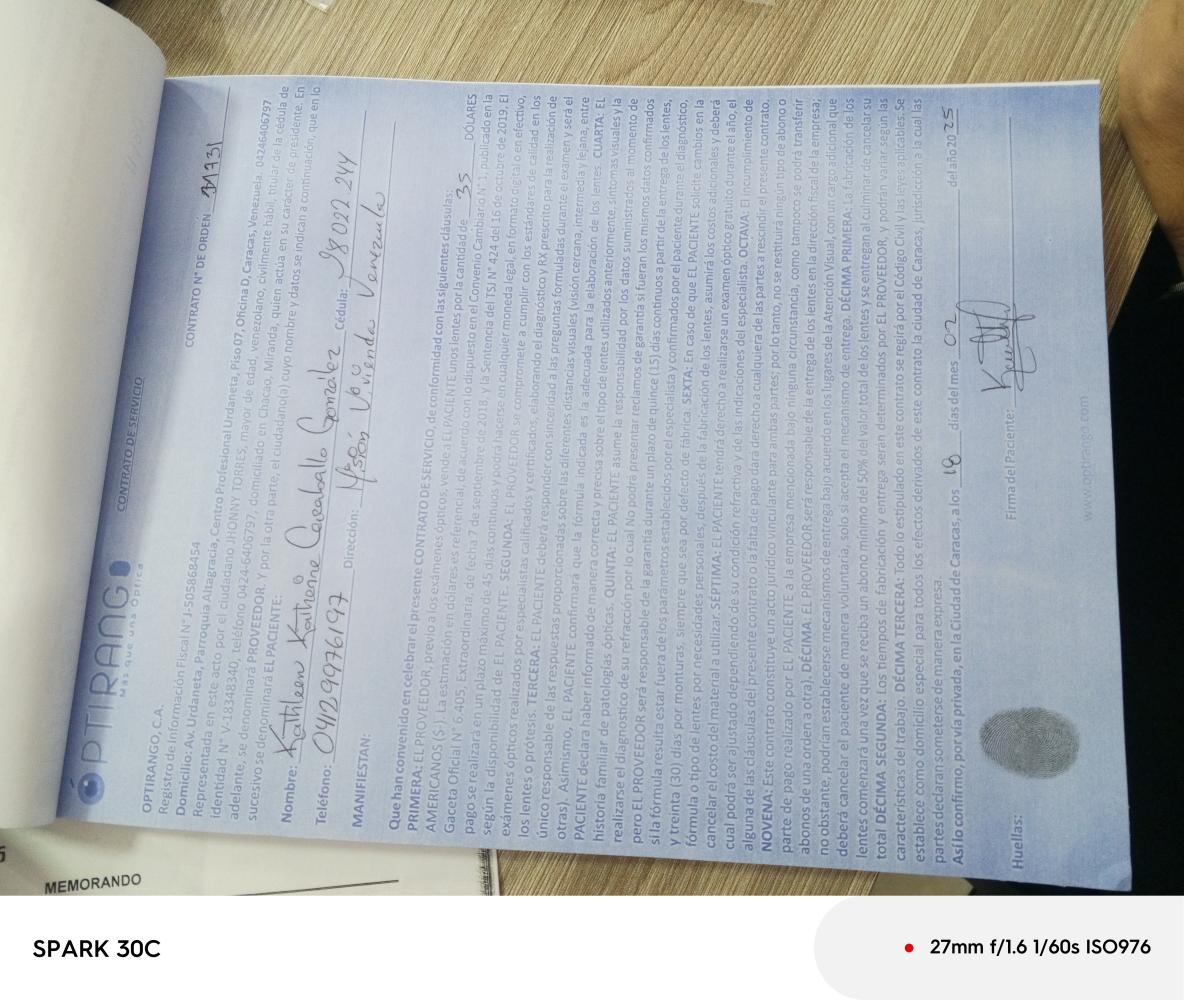 ÓPTIRANGO
Más que una Óptica
CONTRATO DE SERVICIO
CONTRATO N° DE ORDEN 31731
OPTIRANGO, C.A.
Registro de Información Fiscal N° J-505868454
Domicilio: Av. Urdaneta, Parroquia Altagracia, Centro Profesional Urdaneta, Piso 07, Oficina D, Caracas, Venezuela. 04246406797
Representada en este acto por el ciudadano JHONNY TORRES, mayor de edad, venezolano, civilmente hábil, titular de la cédula de
identidad N° V-18348340, teléfono 0424-6406797, domiciliado en Chacao, Miranda, quien actúa en su carácter de presidente. En
adelante, se denominará PROVEEDOR. Y por la otra parte, el ciudadano(a) cuyo nombre y datos se indican a continuación; que en lo
sucesivo se denominará EL PACIENTE:
Nombre: Kathleen Katherine Caraballo González Cédula: 18 022 244
Teléfono: 04129976197 Dirección: Misión Vivienda Venezuela
MANIFIESTAN:
Que han convenido en celebrar el presente CONTRATO DE SERVICIO, de conformidad con las siguientes cláusulas:
PRIMERA: EL PROVEEDOR, previo a los exámenes ópticos, vende a EL PACIENTE unos lentes por la cantidad de 35 DÓLARES
AMERICANOS ($-). La estimación en dólares es referencial, de acuerdo con lo dispuesto en el Convenio Cambiario N° 1, publicado en la
Gaceta Oficial N° 6.405, Extraordinaria, de fecha 7 de septiembre de 2018, y la Sentencia del TSJ N° 424 del 16 de octubre de 2019; El
pago se realizará en un plazo máximo de 45 días continuos y podrá hacerse en cualquier moneda legal, en formato digital o en efectivo,
según la disponibilidad de EL PACIENTE. SEGUNDA: EL PROVEEDOR se compromete a cumplir con los estándares de calidad en los
exámenes ópticos realizados por especialistas calificados y certificados, elaborando el diagnóstico y RX prescrito para la realización de
los lentes o prótesis. TERCERA: EL PACIENTE deberá responder con sinceridad a las preguntas formuladas durante el examen y será el
único responsable de las respuestas proporcionadas sobre las diferentes distancias visuales (visión cercana, intermedia y lejana, entre
otras). Asimismo, EL PACIENTE confirmará que la fórmula indicada es la adecuada para la elaboración de los lentes. CUARTA: EL
PACIENTE declara haber informado de manera correcta y precisa sobre el tipo de lentes utilizados anteriormente, síntomas visuales y la
historia familiar de patologías ópticas. QUINTA: EL PACIENTE asume la responsabilidad por los datos suministrados al momento de
realizarse el diagnostico de su refracción por lo cual No podrá presentar reclamos de garantía si fueran los mismos datos confirmados
pero EL PROVEEDOR será responsable de la garantía durante un plazo de quince (15) días continuos a partir de la entrega de los lentes,
si la fórmula resulta estar fuera de los parámetros establecidos por el especialista y confirmados por el paciente durante el diagnóstico,
y treinta (30) días por monturas, siempre que sea por defecto de fábrica. SEXTA: En caso de que EL PACIENTE solicite cambios en la
fórmula o tipo de lentes por necesidades personales, después de la fabricación de los lentes, asumirá los costos adicionales y deberá
cancelar el costo del material a utilizar. SÉPTIMA: EL PACIENTE tendrá derecho a realizarse un examen óptico gratuito durante el año, el
cual podrá ser ajustado dependiendo de su condición refractiva y de las indicaciones del especialista. OCTAVA: El incumplimiento de
alguna de las cláusulas del presente contrato o la falta de pago dará derecho a cualquiera de las partes a rescindir el presente contrato.
NOVENA: Este contrato constituye un acto jurídico vinculante para ambas partes; por lo tanto, no se restituirá ningún tipo de abono o
parte de pago realizado por EL PACIENTE a la empresa mencionada bajo ninguna circunstancia, como tampoco se podrá transferir
abonos de una orden a otra). DÉCIMA. EL PROVEEDOR será responsable de la entrega de los lentes en la dirección fiscal de la empresa;
no obstante, podrían establecerse mecanismos de entrega bajo acuerdo en los lugares de la Atención Visual, con un cargo adicional que
deberá cancelar el paciente de manera voluntaria, solo si acepta el mecanismo de entrega. DÉCIMA PRIMERA: La fabricación de los
lentes comenzará una vez que se reciba un abono mínimo del 50% del valor total de los lentes y se entregan al culminar de cancelar su
total DÉCIMA SEGUNDA: Los tiempos de fabricación y entrega serán determinados por EL PROVEEDOR, y podrán variar según las
características del trabajo. DÉCIMA TERCERA: Todo lo estipulado en este contrato se regirá por el Código Civil y las leyes aplicables. Se
establece como domicilio especial para todos los efectos derivados de este contrato la ciudad de Caracas, jurisdicción a la cual las
partes declaran someterse de manera expresa.
Así lo confirmo, por vía privada, en la Ciudad de Caracas, a los 18 días del mes 02 del año 2025
Huellas:
Firma del Paciente:
www.optirango.com
MEMORANDO
SPARK 30C
27mm f/1.6 1/60s ISO976